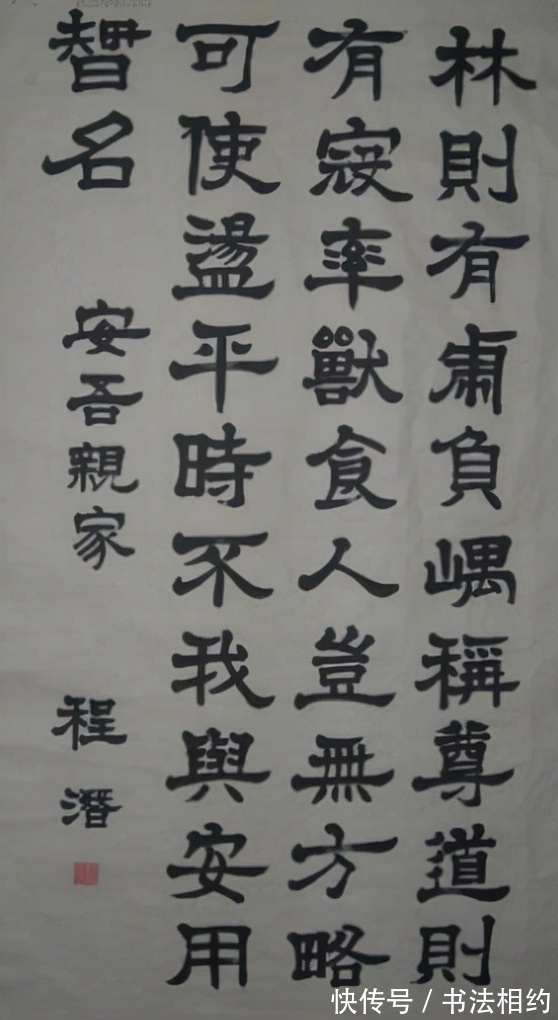 林則有虎負嵎稱尊道則
有寇率獸食人豈無方略
可使盪平時不我與安用
智名
安吾親家
程潛
快传号/书法相约